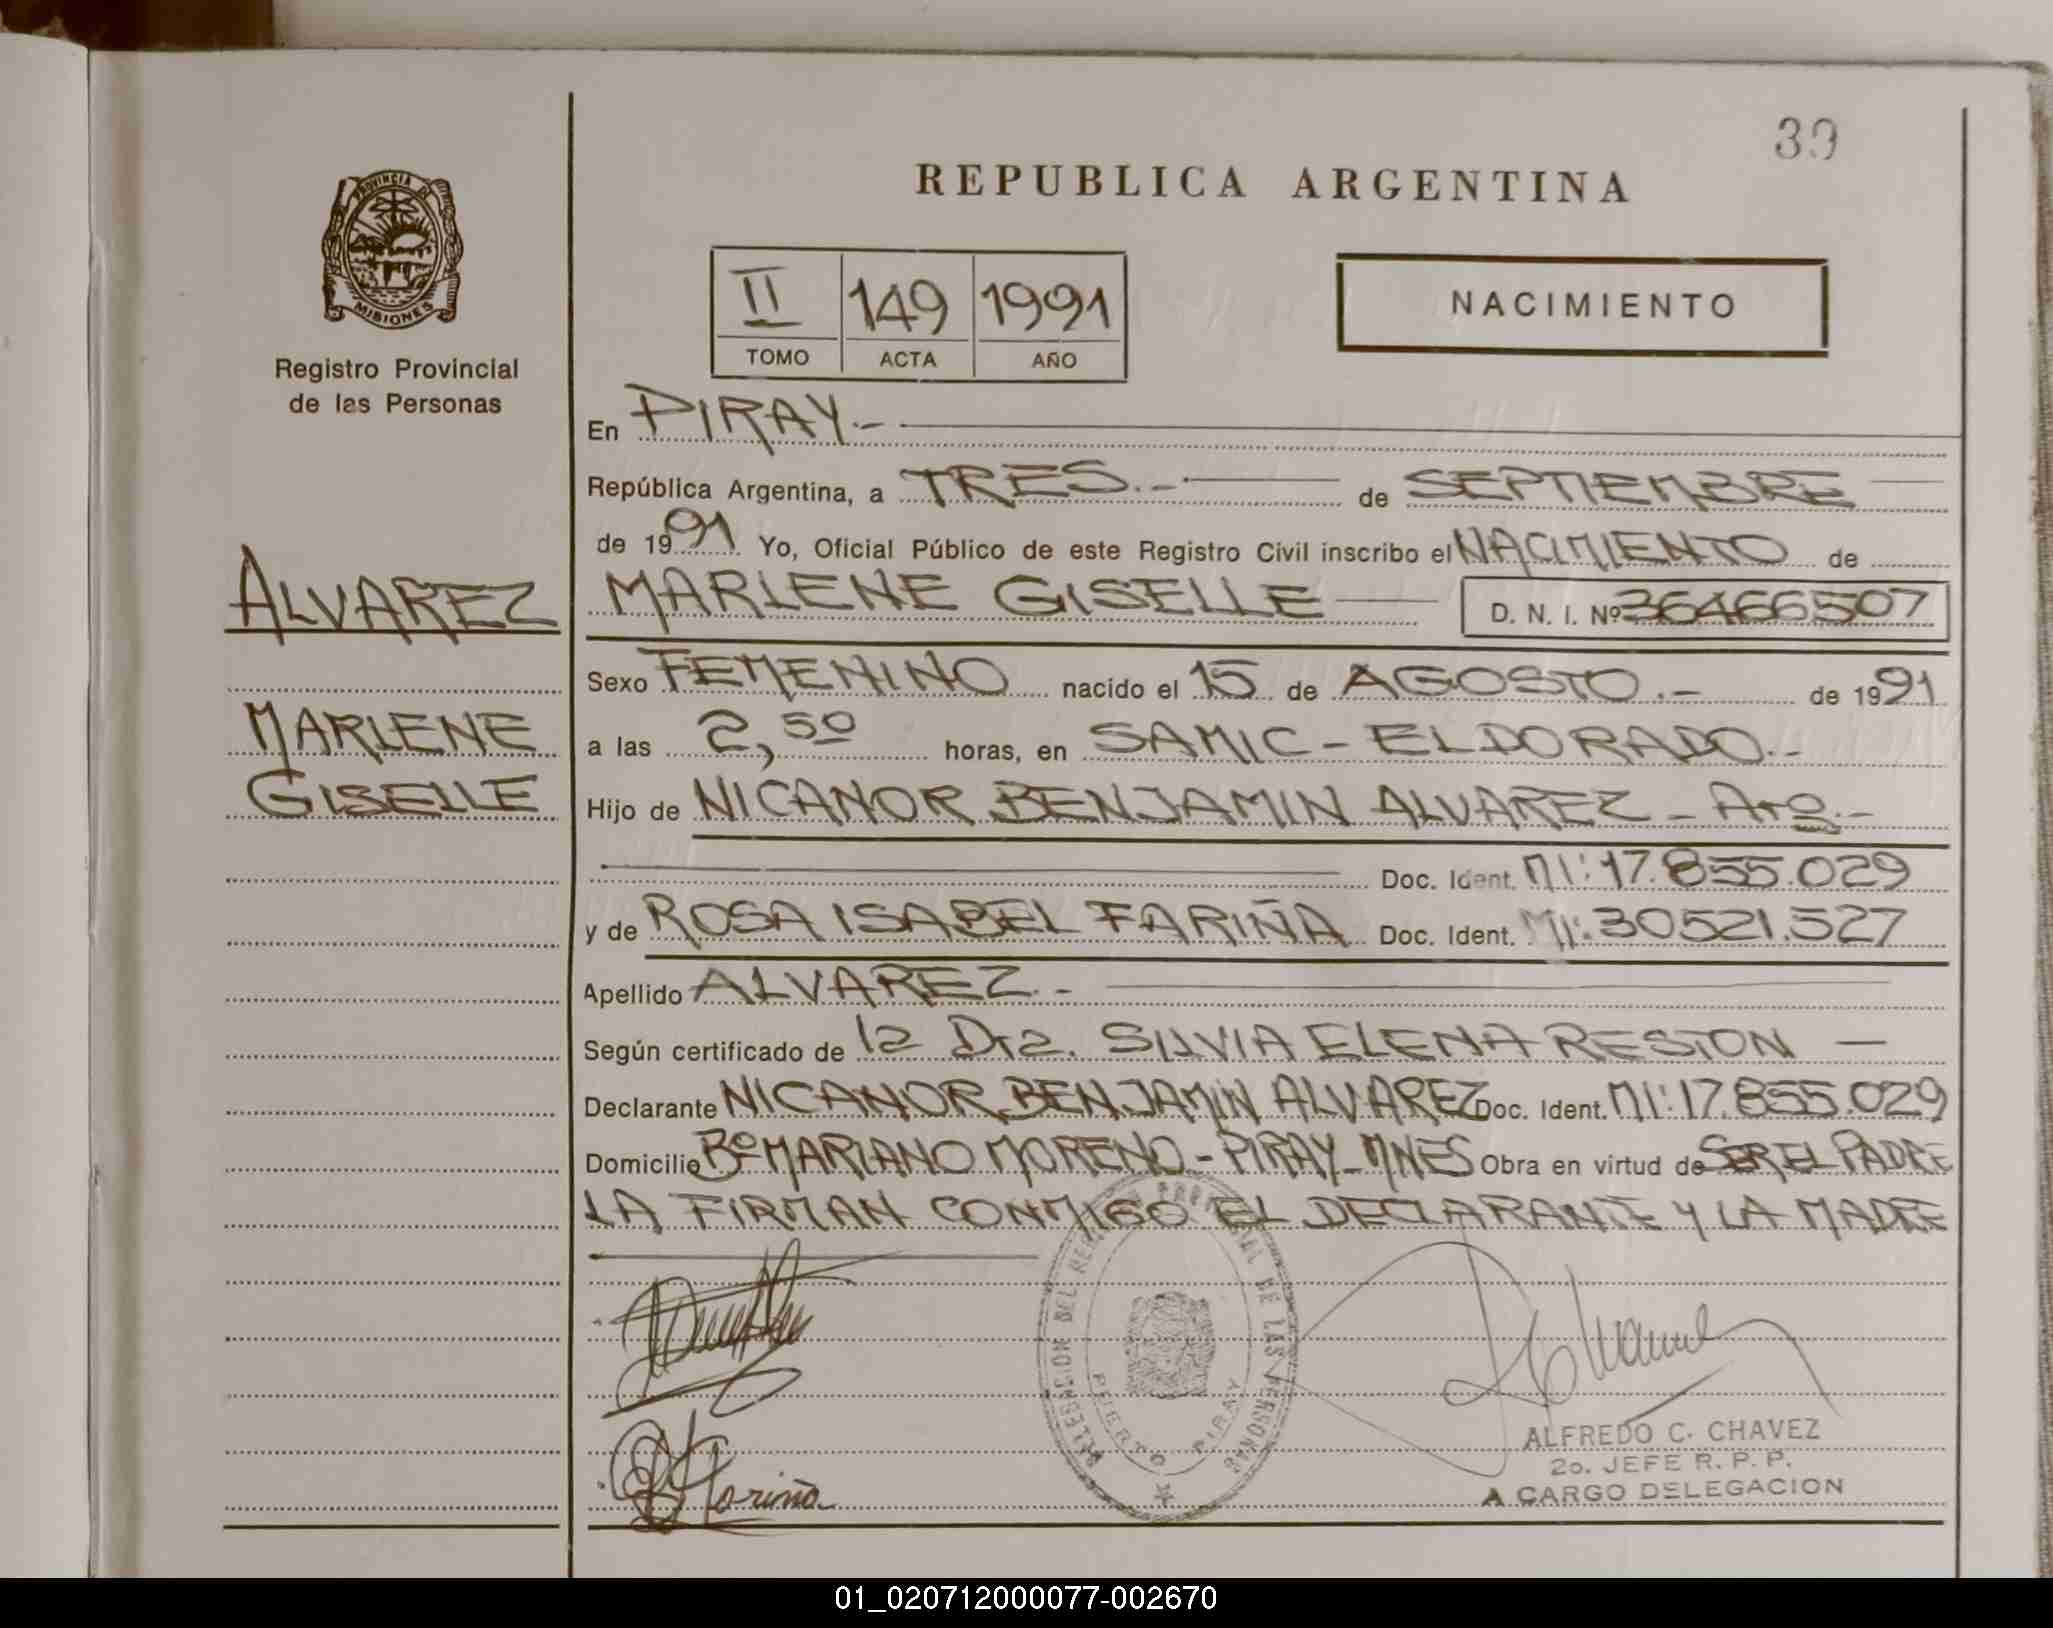 39
REPUBLICA ARGENTINA
PROVINCIA DE
MISIONES
Registro Provincial
de las Personas
II 149 1991
TOMO ACTA AÑO
NACIMIENTO
En PIRAY.-
República Argentina, a TRES.- de SEPTIEMBRE
de 1991 Yo, Oficial Público de este Registro Civil inscribo el NACIMIENTO de
ALVAREZ
MARLENE GISELLE D. N. I. Nº 36466507
Sexo FEMENINO nacido el 15 de AGOSTO.- de 1991
MARLENE
a las 2,50 horas, en SAMIC - ELDORADO.-
GISELLE
Hijo de NICANOR BENJAMIN ALVAREZ - Arg.-
Doc. Ident. MI: 17.855.029
y de ROSA ISABEL FARIÑA Doc. Ident. MI: 30521.527
Apellido ALVAREZ.-
Según certificado de la Dra. SILVIA ELENA RESTON -
Declarante NICANOR BENJAMIN ALVAREZ Doc. Ident. MI: 17.855.029
Domicilio Bº MARIANO MORENO - PIRAY - MNES Obra en virtud de SER EL PADRE
LA FIRMAN CONMIGO EL DECLARANTE Y LA MADRE
DELEGACION DEL REGISTRO PROVINCIAL DE LAS PERSONAS
PUERTO PIRAY
Fariña
ALFREDO C. CHAVEZ
2o. JEFE R. P. P.
A CARGO DELEGACION
01_020712000077-002670